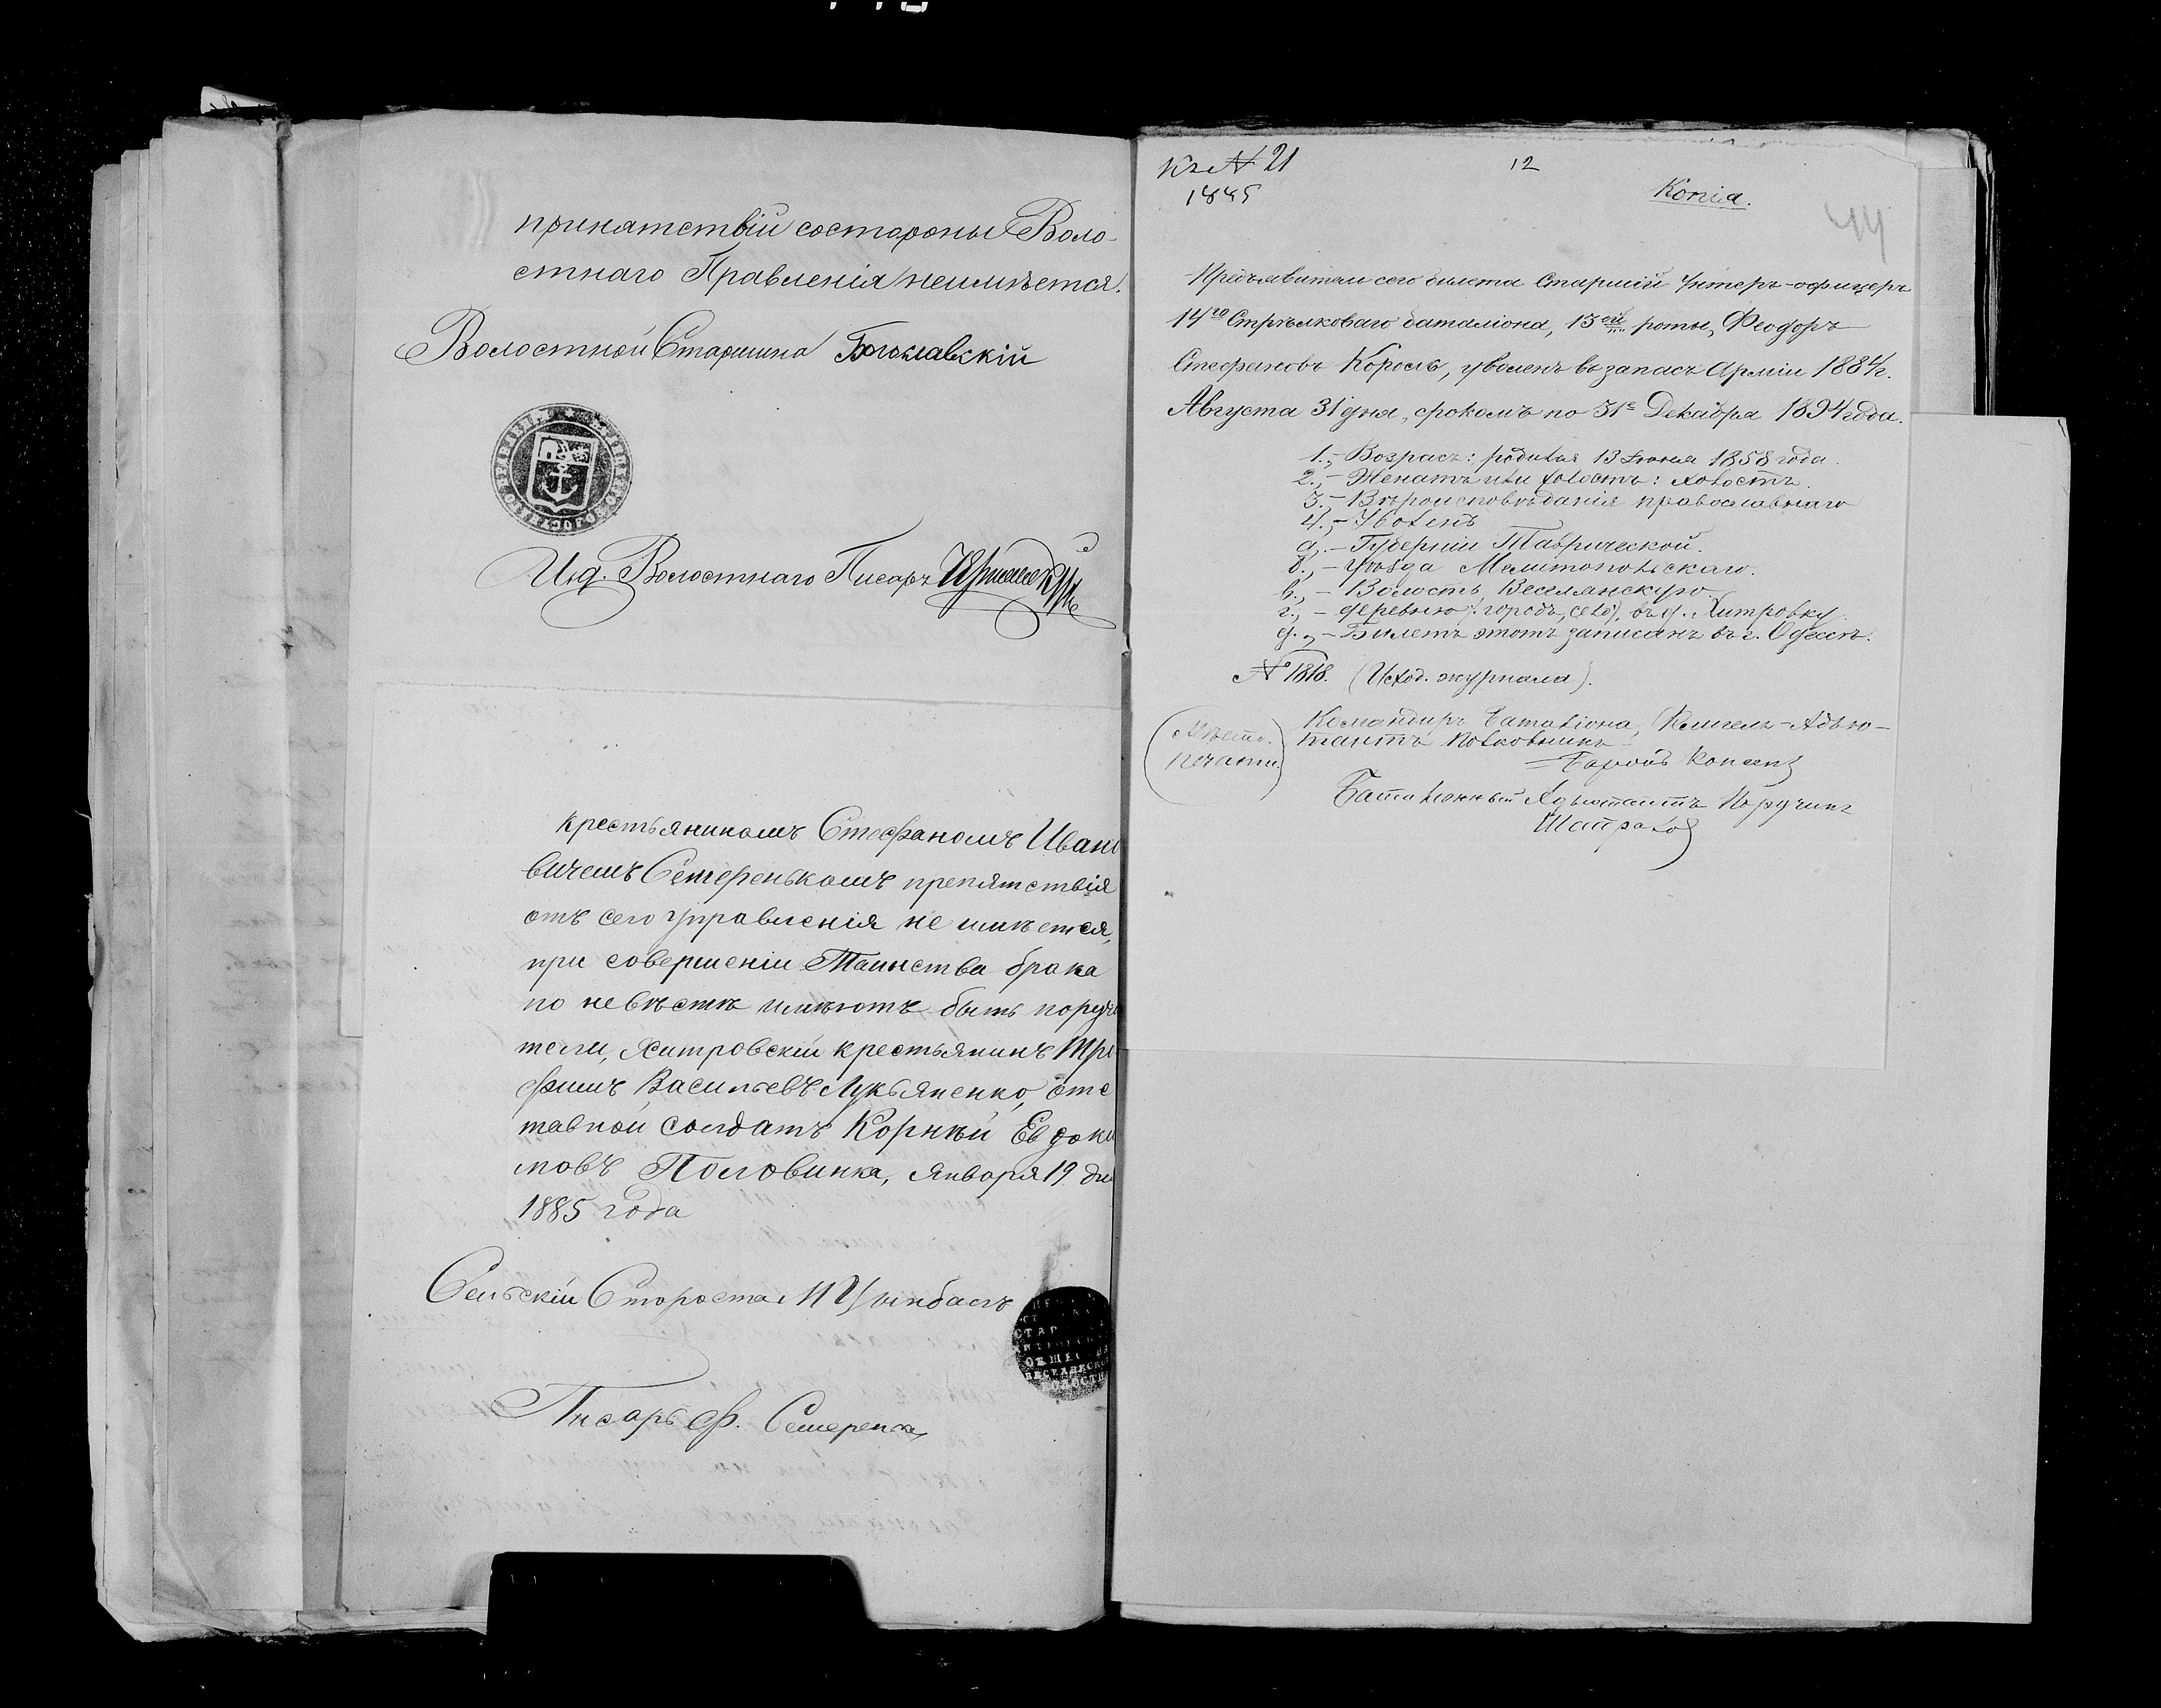 припятствій состороны Воло-
стнаго Правленія неимѣется.
Волостной Старшина
Волостнаго Писаря
крестьяниномъ Стефаномъ Ивано
вичемъ Семеренькомъ препятствія
отъ сего управленія не имѣется,
при совершеніи Таинства брака
по невѣстѣ имѣютъ быть поручи
тели, Хитровскій крестьянинъ Тро
фимъ Васильевъ Лукьяненко, отс
тавной солдатъ Корнѣй Евдоки
мовъ Половинка, Января 19 дня
1885 года
Сельскій Староста
Писарь Ф. Семеренко
Къ № 21
1885
12
Копія.
44
Предъявитель сего билета Старшій Унтеръ-офицеръ
14го Стрѣлковаго баталіона, роты, Феодоръ
Стефановъ Король, уволенъ въ запасъ Арміи 1884 г.
Августа 31 дня, срокомъ по 31е Декабря 1894 года.
1., - Возрасъ: родился 13 Іюня 1858 года.
2., - Женатъ или холостъ: холостъ.
3., - Вѣроисповѣданія православнаго
4., - Уволенъ
а., - Губерніи Таврической.
б., - Уѣзда Мелитопольскаго.
в., - Волость Веселянскую.
г., - деревню (городъ, село), въ д. Хитровку.
д., - Билетъ этотъ записанъ въ г. Одессѣ.
№ 1818. (Исход. журнала).
Командиръ Баталіона, Флигель-Адъю-
тантъ Полковникъ
Баронъ
Мѣсто
печати.
Баталіонный Адъютантъ Поручикъ